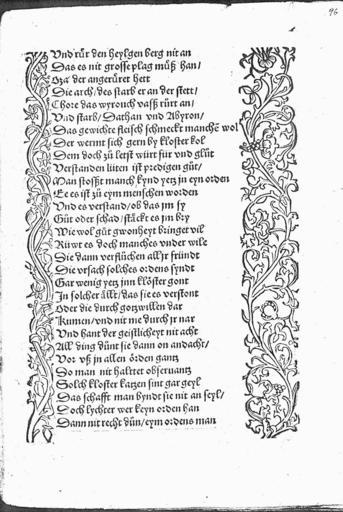 96
Vnd růr den heylgen berg nit an
Das es nit grosse plag můß han/
Oza der angerůret hett
Die arch/des starb er an der stett/
Chore das wyrouch vaß rürt an/
Vnd starb/Dathan vnd Abyron/
Das gewichte fleisch schmeckt manchē wol
Der wermt sich gern by kloster kol
Dem doch zů letst würt für vnd glůt
Verstanden lüten ist predigen gůt/
Man stosßt manch kynd yetz jn eyn orden
Ee es ist zů eym menschen worden
Vnd es verstand/ob das jm sy
Gůt oder schad/stäckt es jm bry
Wie wol gůt gwonheyt bringet vil
Rüwt es doch manches vnder wile
Die dann verflůchen all jr fründt
Die vrsach solches ordens syndt
Gar wenig yetz jnn klöster gont
In solcher ällt/das sie es verstont
Oder die durch gotzwillen dar
Kumen/vnd nit me durch jr nar
Vnd hant der geistlicheyt nit acht
All ding důnt sie dann on andacht/
Vor vß jn allen örden gantz
Do man nit haltet obseruantz
Solch kloster katzen sint gar geyl
Das schafft man byndt sie nit an seyl/
Doch lychter wer keyn orden han
Dann nit recht důn/eym ordens man